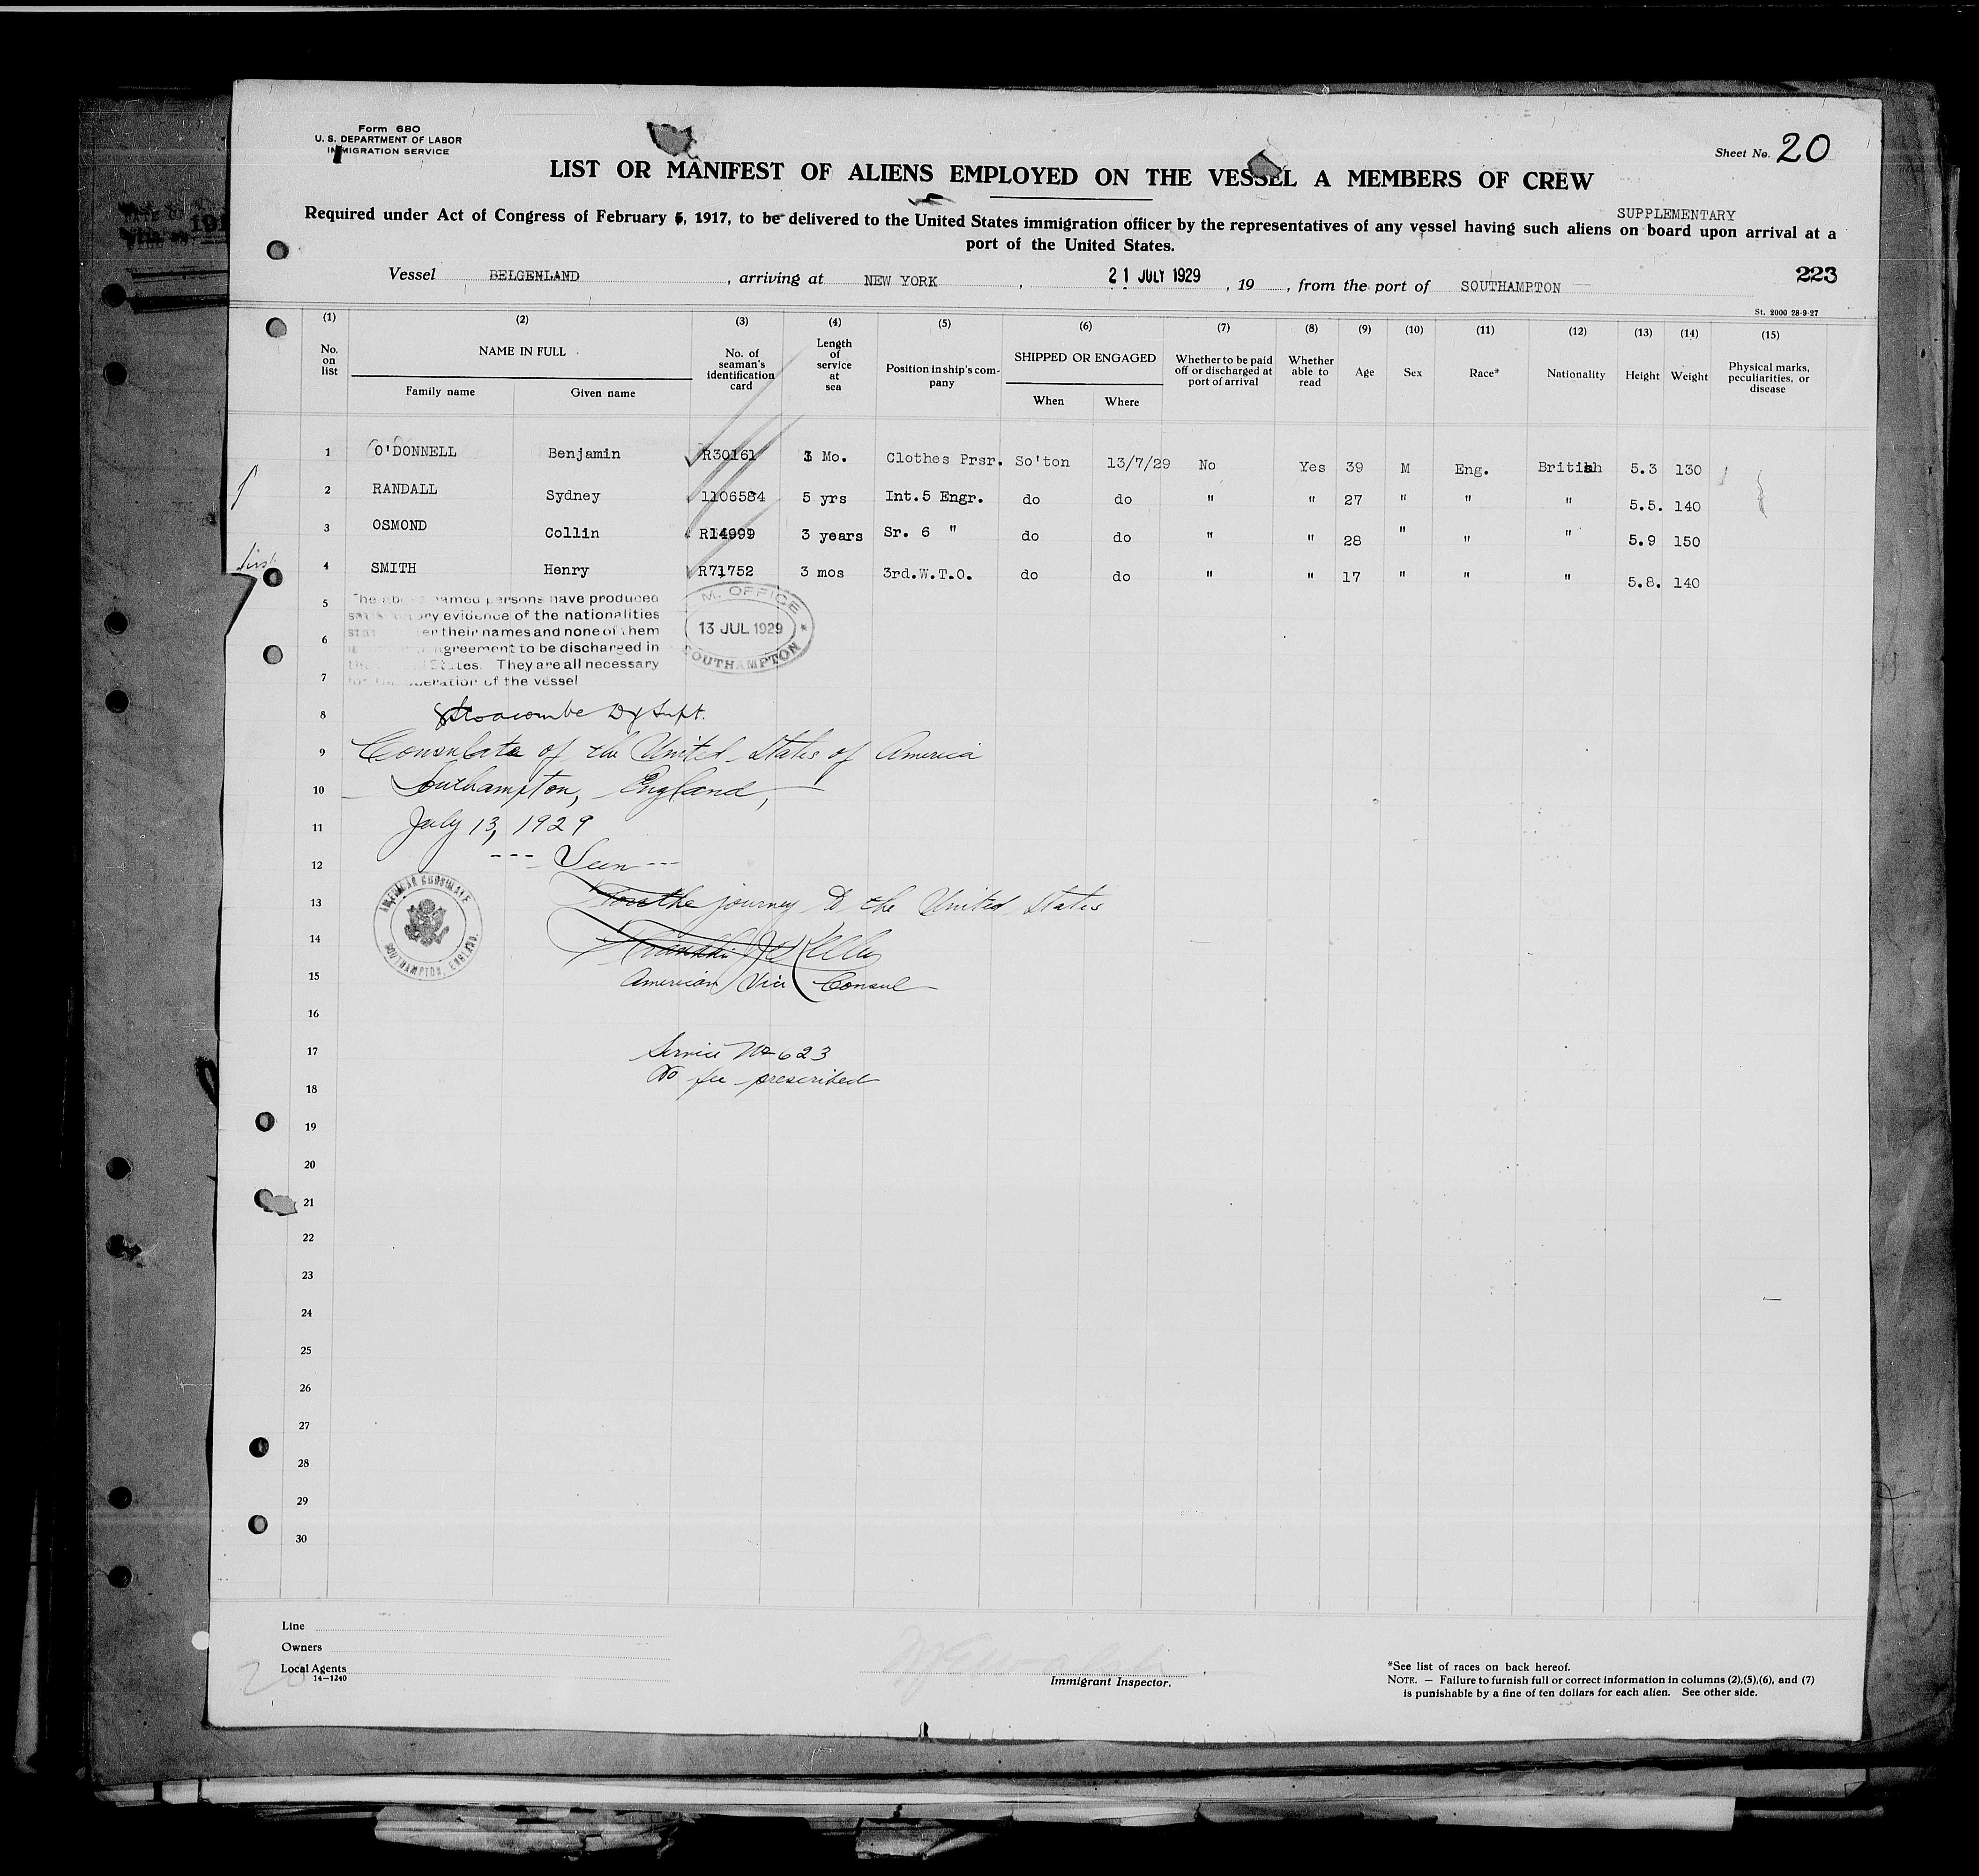 Form 680
U. S. DEPARTMENT OF LABOR
IMMIGRATION SERVICE
Sheet No. 20
LIST OR MANIFEST OF ALIENS EMPLOYED ON THE VESSEL A MEMBERS OF CREW
SUPPLEMENTARY
Required under Act of Congress of February 5, 1917, to be delivered to the United States immigration officer by the representatives of any vessel having such aliens on board upon arrival at a
port of the United States.
Vessel BELGENLAND, arriving at NEW YORK, 21 JULY 1929, 19, from the port of SOUTHAMPTON
223
St. 2000 28-9-27
(1) (2) (3) (4) (5) (6) (7) (8) (9) (10) (11) (12) (13) (14) (15)
No. on list NAME IN FULL Family name Given name No. of seaman's identification card Length of service at sea Position in ship's company SHIPPED OR ENGAGED When Where Whether to be paid off or discharged at port of arrival Whether able to read Age Sex Race* Nationality Height Weight Physical marks, peculiarities, or disease
1 O'DONNELL Benjamin R30161 3 Mo. Clothes Prsr. So'ton 13/7/29 No Yes 39 M Eng. British 5.3 130
2 RANDALL Sydney 1106584 5 yrs Int.5 Engr. do do " " 27 " " " 5.5. 140
3 OSMOND Collin R14999 3 years Sr. 6 " do do " " 28 " " " 5.9 150
4 SMITH Henry R71752 3 mos 3rd.W.T.O. do do " " 17 " " " 5.8. 140
5
6
7
The above named persons have produced
satisfactory evidence of the nationalities
stated after their names and none of them
agreement to be discharged in
the States. They are all necessary
for the operation of the vessel
M. OFFICE
13 JUL 1929
SOUTHAMPTON
8 Dy Supt.
9 Consulate of the United States of America
10 Southampton, England,
11 July 13, 1929
12 --- Seen ---
13 For the journey to the United States
AMERICAN CONSULATE
SOUTHAMPTON, ENGLAND.
14 Kelley
15 American Vice Consul
16
17 Service No 623
No fee prescribed
18
19
20
21
22
23
24
25
26
27
28
29
30
Line
Owners
Local Agents
14-1240
Immigrant Inspector.
*See list of races on back hereof.
NOTE. — Failure to furnish full or correct information in columns (2),(5),(6), and (7)
is punishable by a fine of ten dollars for each alien. See other side.